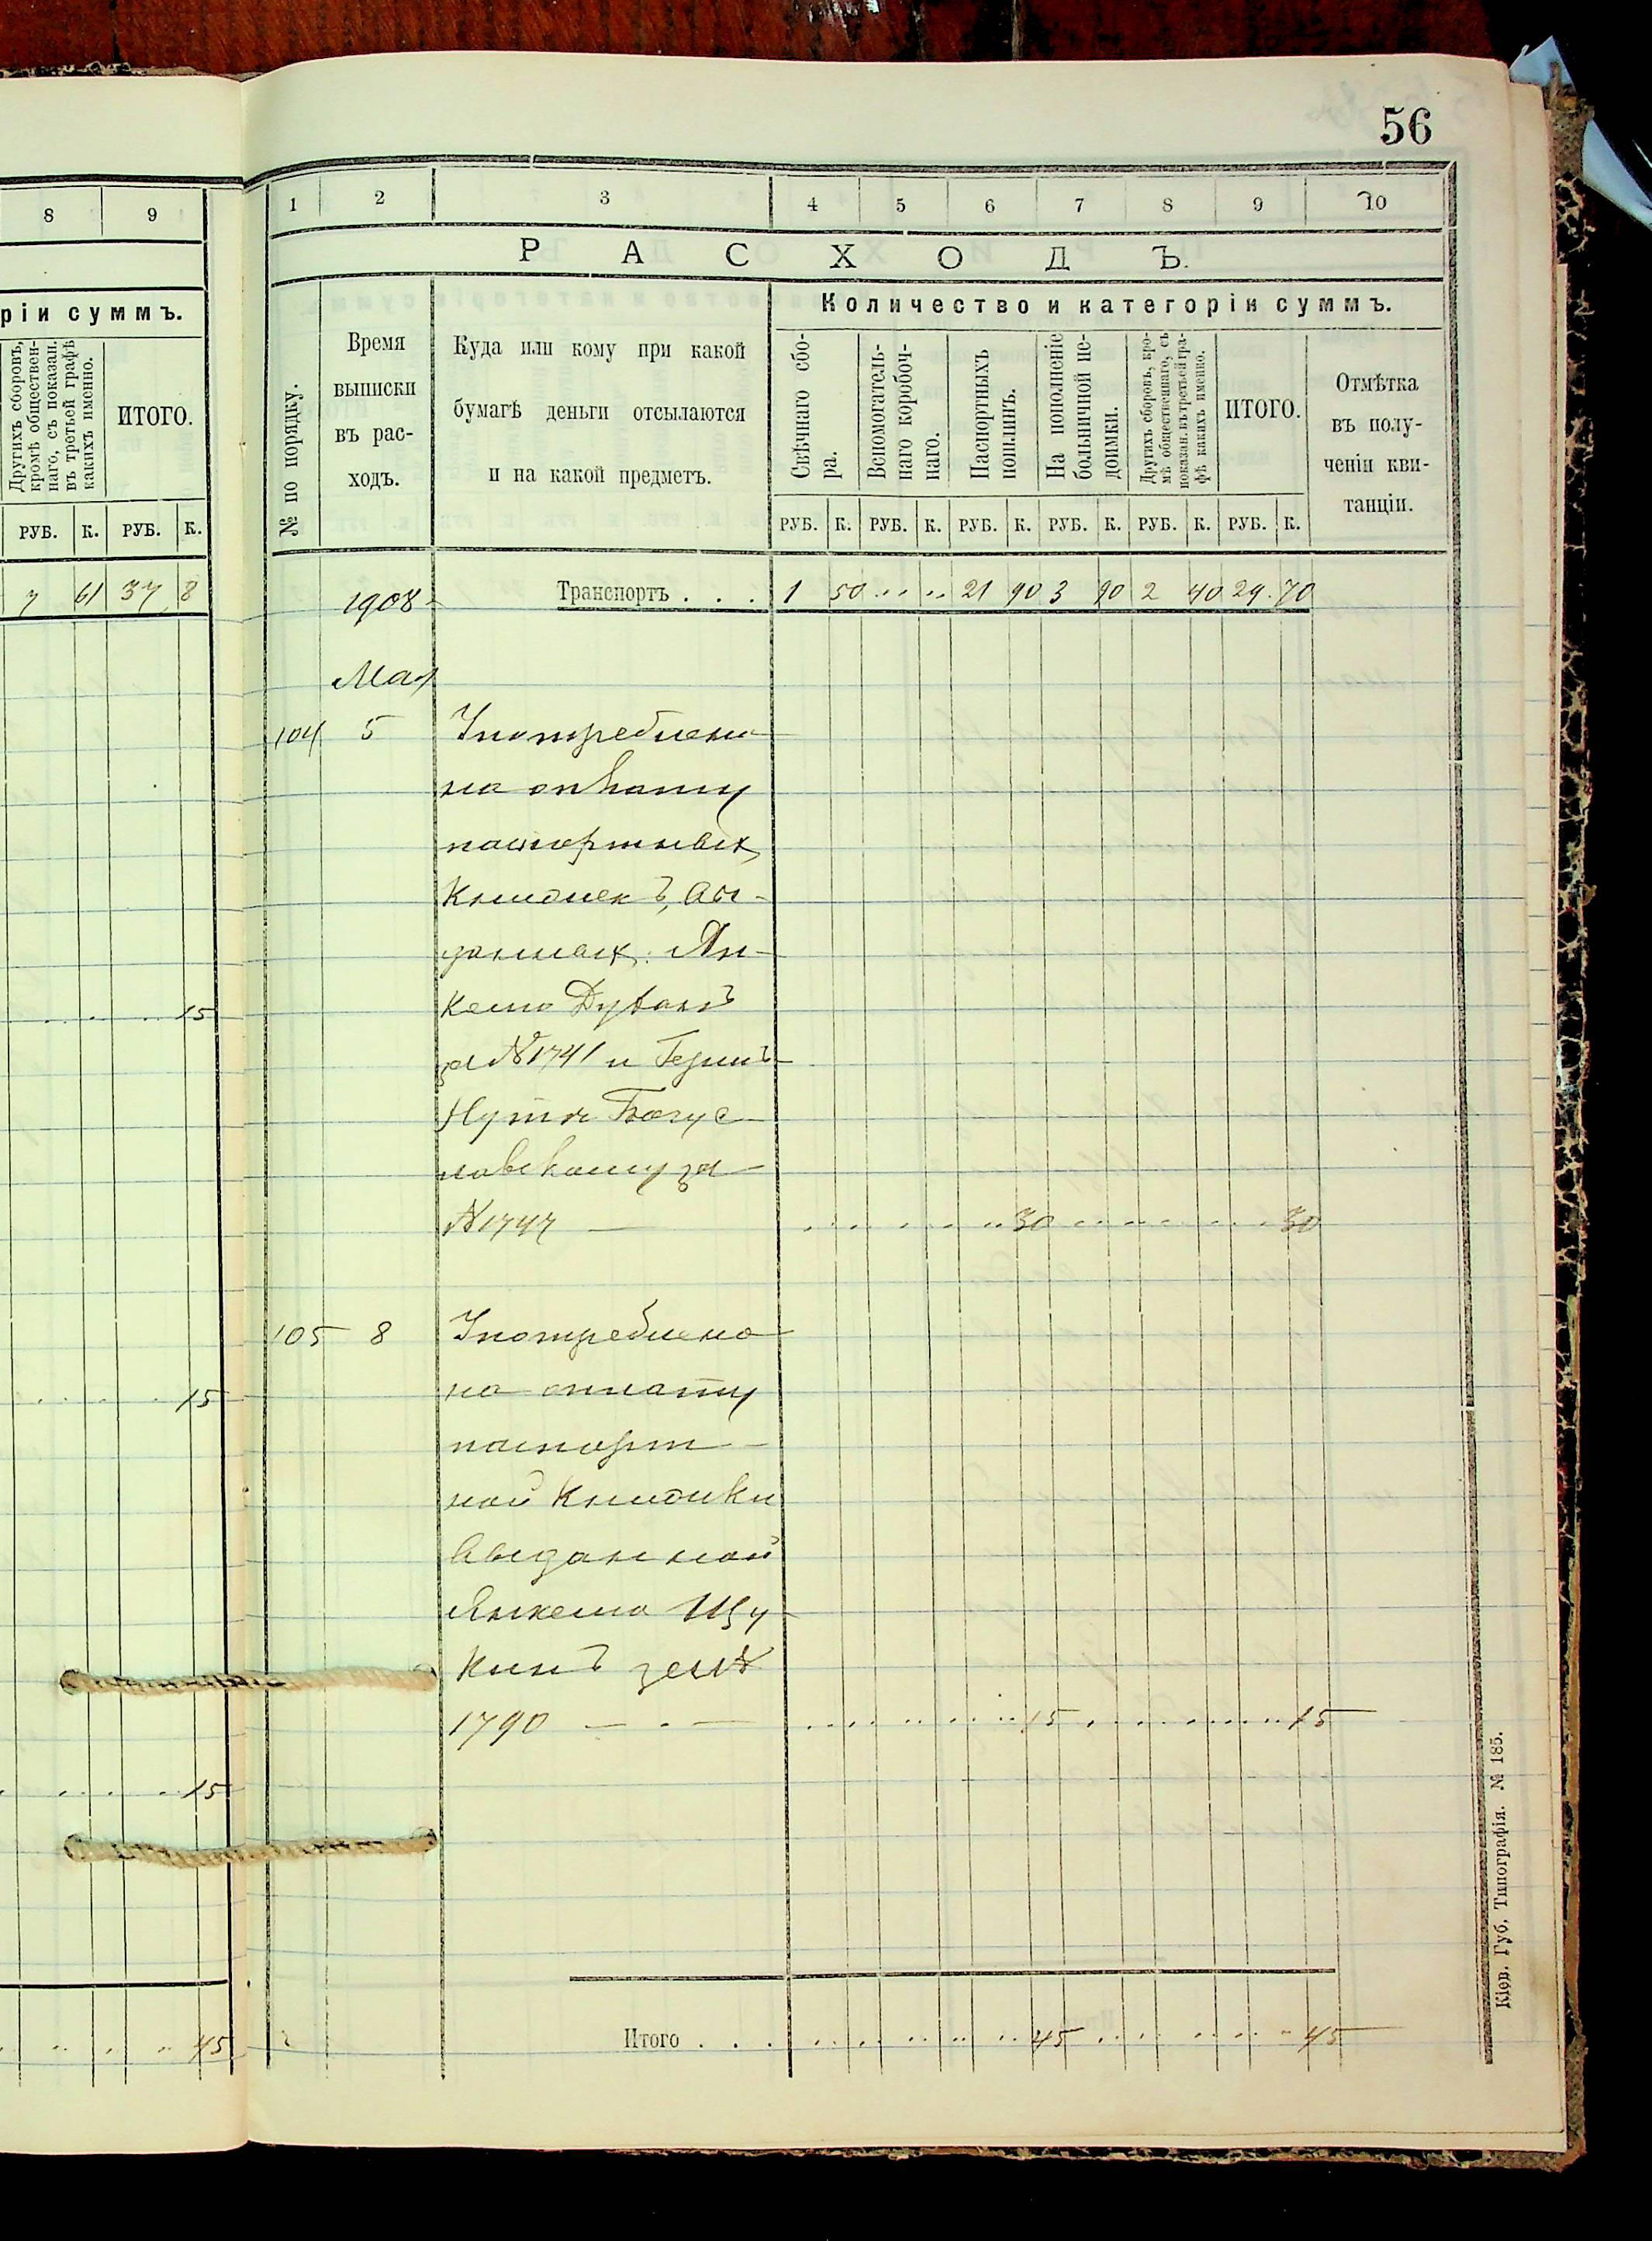 56
8 9
ріи суммъ.
Другихъ сборовъ,
кромѣ обществен-
наго, съ показан.
въ третьей графѣ
какихъ именно.
ИТОГО.
РУБ. К. РУБ. К.
7 61 37 8
15
15
15
45
1 2 3 4 5 6 7 8 9 10
РАСХОДЪ.
№ по порядку.
Время
выписки
въ рас-
ходъ.
Куда или кому при какой
бумагѣ деньги отсылаются
и на какой предметъ.
Количество и категоріи суммъ.
Свѣчнаго сбо-
ра.
Вспомогатель-
наго коробоч-
наго.
Паспортныхъ
пошлинъ.
На пополненіе
больничной не-
доимки.
Другихъ сборовъ, кро-
мѣ общественнаго, съ
показан. въ третьей гра-
фѣ какихъ именно.
ИТОГО.
Отмѣтка
въ полу-
ченіи кви-
танціи.
РУБ. К. РУБ. К. РУБ. К. РУБ. К. РУБ. К. РУБ. К.
1908 Транспортъ . . . 1 50 21 90 3 90 2 40 29 70
Мая
104 5 Употреблено
на оплату
паспортныхъ
книжекъ, вы-
данныхъ: Ян-
келю
за №1741 и
Богус-
лавскому за
№1747 — 30 30
105 8 Употреблено
на оплату
паспорт-
ной книжки
выданной
Янкелю Щу-
кинъ за №
1790 — 15 15
Итого . . . 45 45
Кіев. Губ. Типографія. № 185.